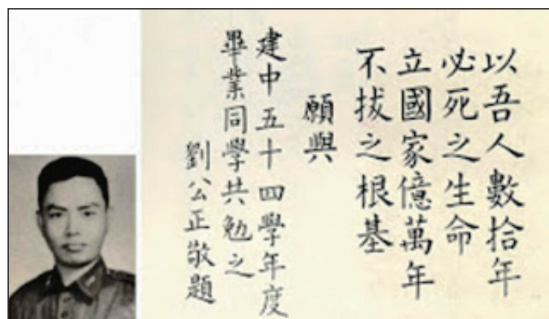 以吾人數拾年
必死之生命
立國家億萬年
不拔之根基
願與
建中五十四學年度
畢業同學共勉之
劉公正敬題